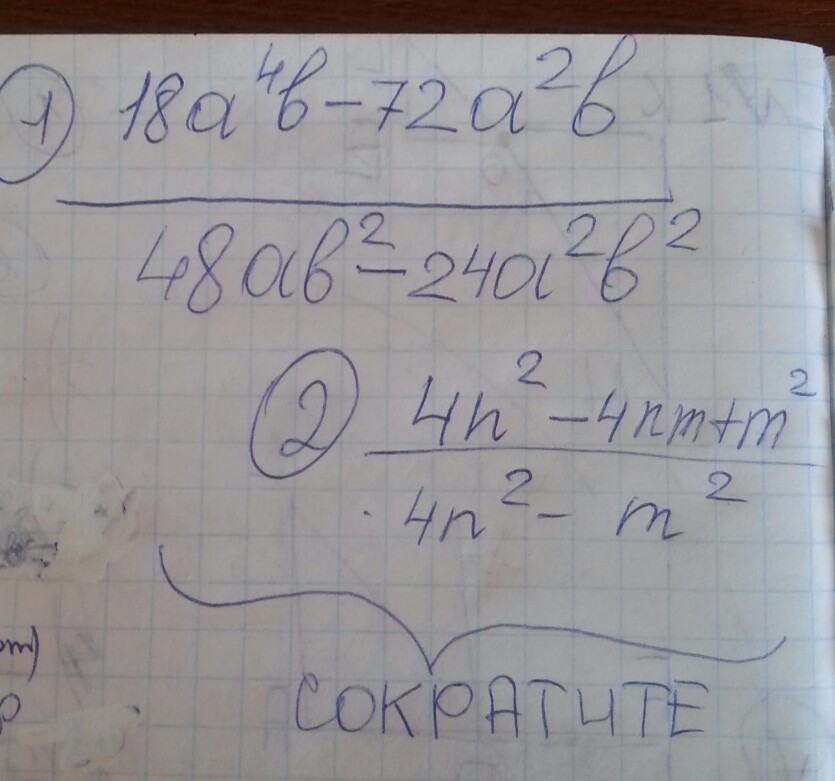 1 18a⁴b-72a²b
48ab²-24a²b²
2 4n²-4nm+m²
4n²- m²
СОКРАТИТЕ